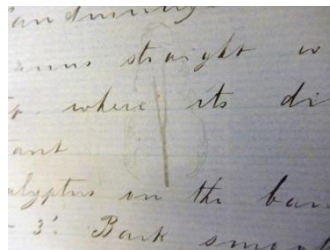 straight
where its di
ant
alyptus in the ban
3'. Bark smo